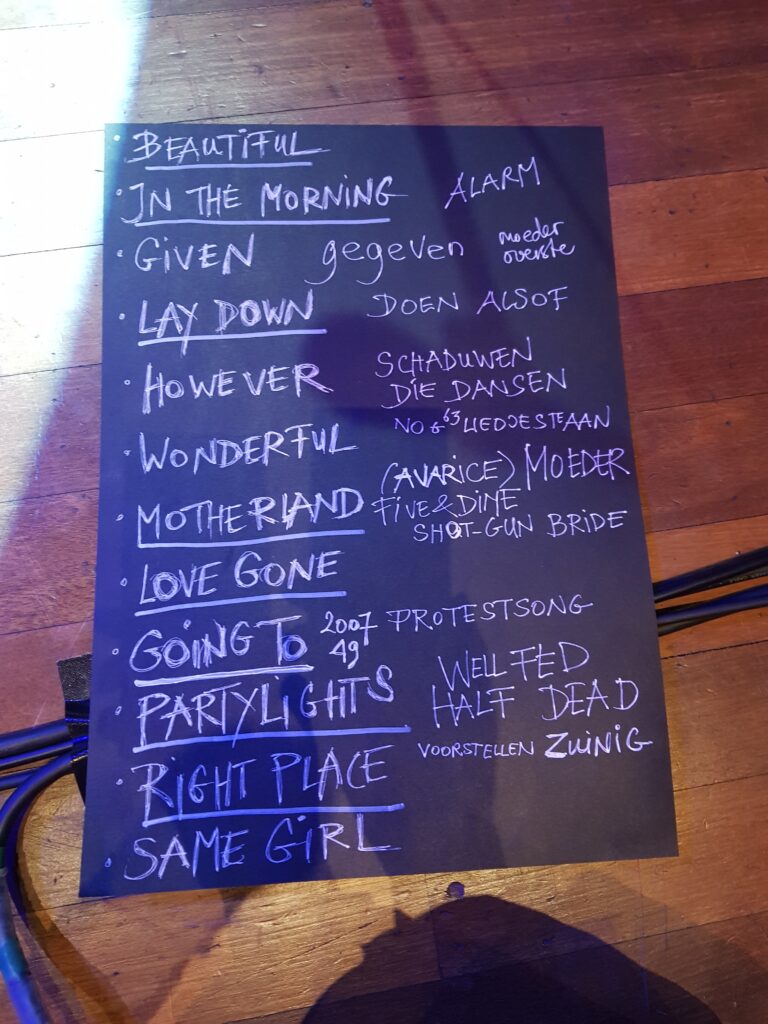 BEAUTIFUL
IN THE MORNING ALARM
GIVEN gegeven moeder overste
LAY DOWN DOEN ALSOF
HOWEVER SCHADUWEN
DIE DANSEN
NO 6 63 LIEDJE
WONDERFUL
(AVARICE) MOEDER
MOTHERLAND FIVE & DINE
SHOT-GUN BRIDE
LOVE GONE
GOING TO 2007 PROTESTSONG
49
WELL FED
PARTYLIGHTS HALF DEAD
VOORSTELLEN ZUINIG
RIGHT PLACE
SAME GIRL